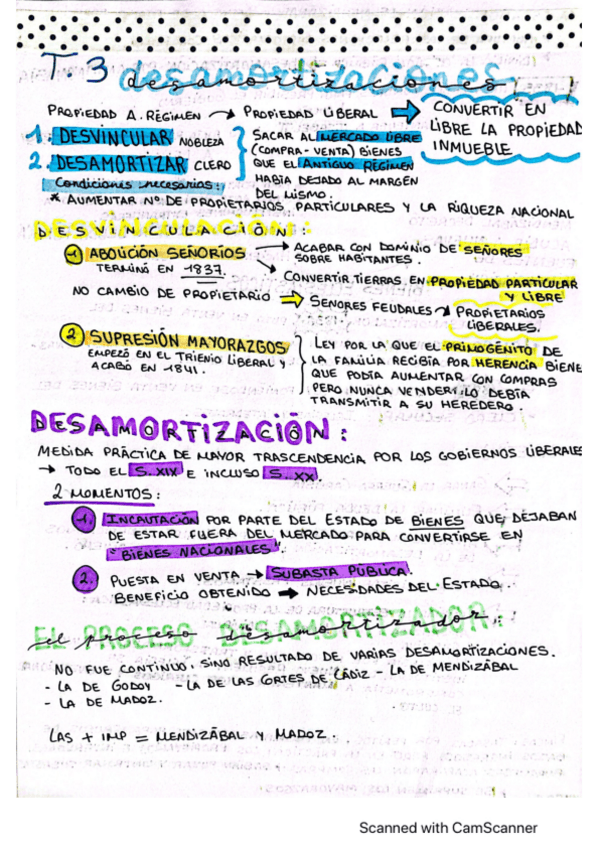 T.3 desamortizaciones
PROPIEDAD A. RÉGIMEN → PROPIEDAD LIBERAL → CONVERTIR EN
LIBRE LA PROPIEDAD
INMUEBLE
1. DESVINCULAR NOBLEZA
2. DESAMORTIZAR CLERO
SACAR AL MERCADO LIBRE
(COMPRA-VENTA) BIENES
QUE EL ANTIGUO RÉGIMEN
HABÍA DEJADO AL MARGEN
DEL MISMO.
Condiciones necesarias:
* AUMENTAR Nº DE PROPIETARIOS PARTICULARES Y LA RIQUEZA NACIONAL
DESVINCULACIÓN:
1 ABOLICIÓN SEÑORIOS
TERMINÓ EN 1837.
→ ACABAR CON DOMINIO DE SEÑORES
SOBRE HABITANTES.
→ CONVERTIR TIERRAS EN PROPIEDAD PARTICULAR
Y LIBRE
NO CAMBIO DE PROPIETARIO → SEÑORES FEUDALES → PROPIETARIOS
LIBERALES.
2 SUPRESIÓN MAYORAZGOS
EMPEZÓ EN EL TRIENIO LIBERAL Y
ACABÓ EN 1841.
LEY POR LA QUE EL PRIMOGÉNITO DE
LA FAMILIA RECIBÍA POR HERENCIA BIENE
QUE PODÍA AUMENTAR CON COMPRAS
PERO NUNCA VENDER, LO DEBÍA
TRANSMITIR A SU HEREDERO.
DESAMORTIZACIÓN:
MEDIDA PRÁCTICA DE MAYOR TRASCENDENCIA POR LOS GOBIERNOS LIBERALE
→ TODO EL S. XIX E INCLUSO S. XX.
2 MOMENTOS:
1. INCAUTACIÓN POR PARTE DEL ESTADO DE BIENES QUE DEJABAN
DE ESTAR FUERA DEL MERCADO PARA CONVERTIRSE EN
"BIENES NACIONALES".
2. PUESTA EN VENTA → SUBASTA PÚBLICA.
BENEFICIO OBTENIDO → NECESIDADES DEL ESTADO.
el proceso desamortizador:
NO FUE CONTINUO, SINO RESULTADO DE VARIAS DESAMORTIZACIONES.
- LA DE GODOY - LA DE LAS CORTES DE CÁDIZ - LA DE MENDIZÁBAL
- LA DE MADOZ.
LAS + IMP = MENDIZÁBAL Y MADOZ.
Scanned with CamScanner